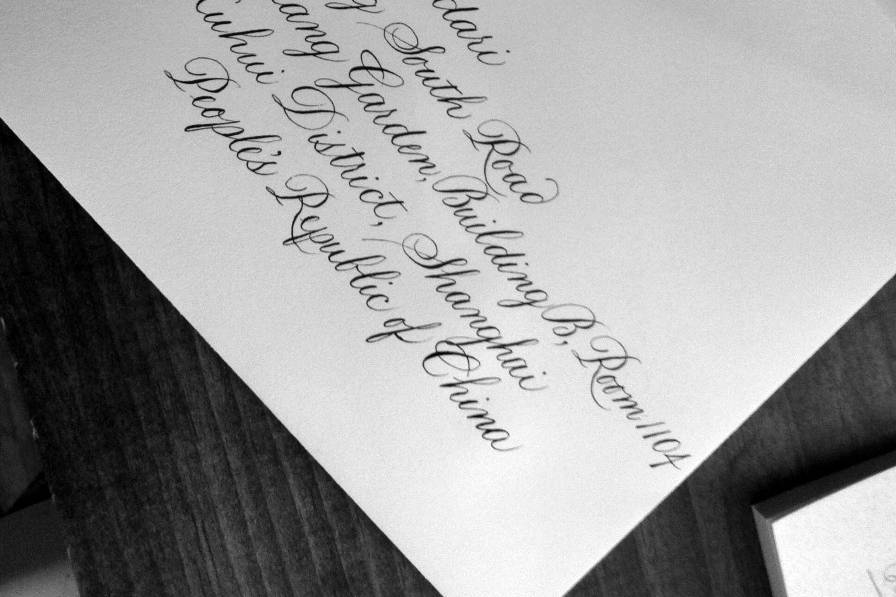 South Road
Garden, Building B, Room 1104
District, Shanghai
People's Republic of China